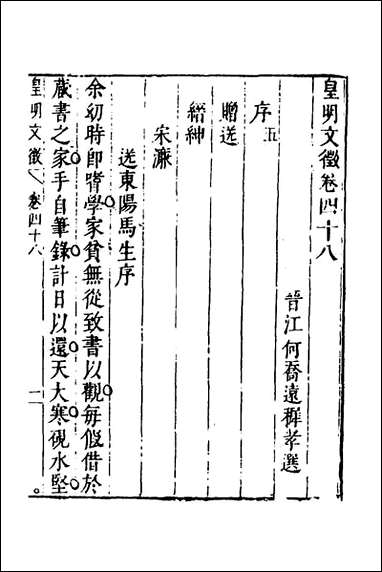 皇明文徵卷四十八
晉江何喬遠穉孝選
序五
贈送
縉紳
宋濂
送東陽馬生序
余幼時即嗜學家貧無從致書以觀每假借於
藏書之家手自筆錄計日以還天大寒硯水堅
皇明文徵 卷四十八 一